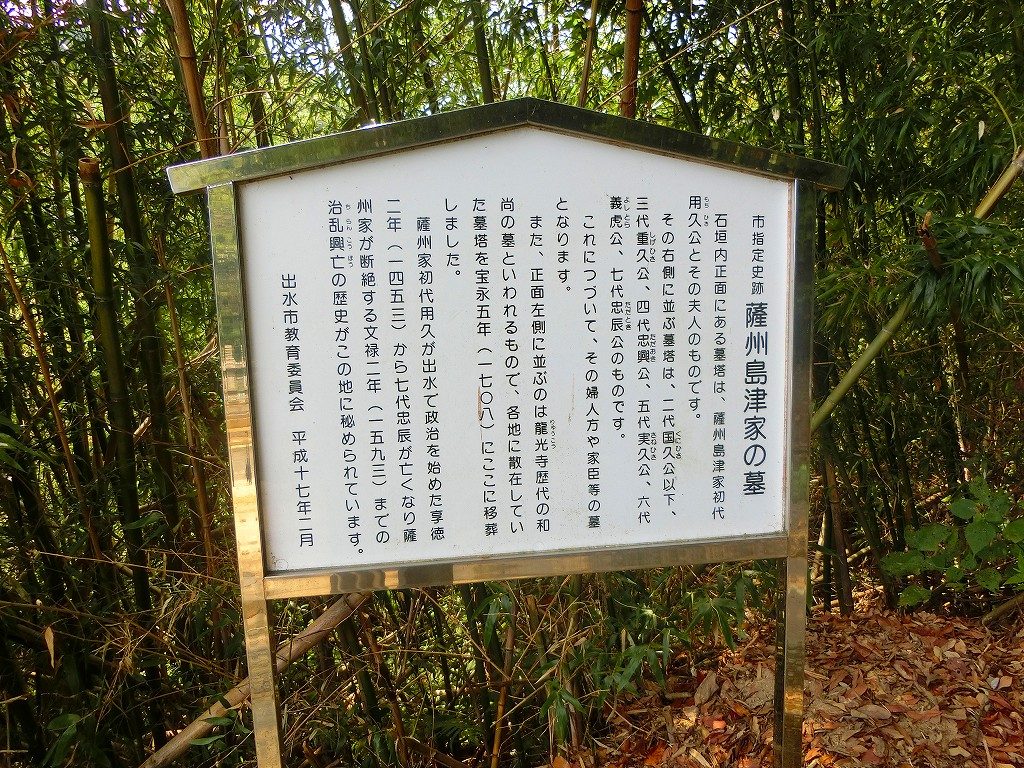 市指定史跡 薩州島津家の墓
石垣内正面にある墓塔は、薩州島津家初代
用久公とその夫人のものです。
その右側に並ぶ墓塔は、二代国久公以下、
三代重久公、四代忠興公、五代実久公、六代
義虎公、七代忠辰公のものです。
これにつづいて、その婦人方や家臣等の墓
となります。
また、正面左側に並ぶのは龍光寺歴代の和
尚の墓といわれるもので、各地に散在してい
た墓塔を宝永五年（一七〇八）にここに移葬
しました。
薩州家初代用久が出水で政治を始めた享徳
二年（一四五三）から七代忠辰が亡くなり薩
州家が断絶する文禄二年（一五九三）までの
治乱興亡の歴史がこの地に秘められています。
出水市教育委員会 平成十七年二月